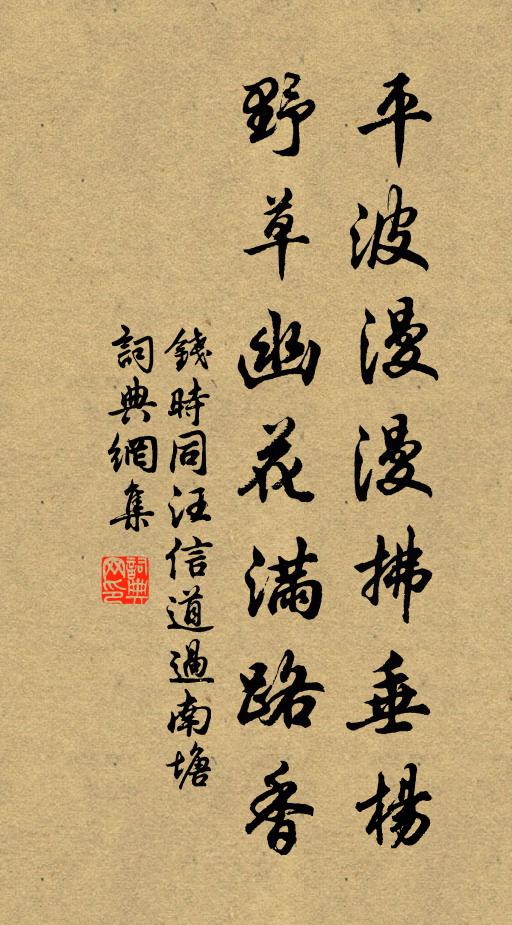 平波漫漫拂垂楊
野草幽花滿路香
錢時同汪信道過南塘
詞典網集
詞典網印